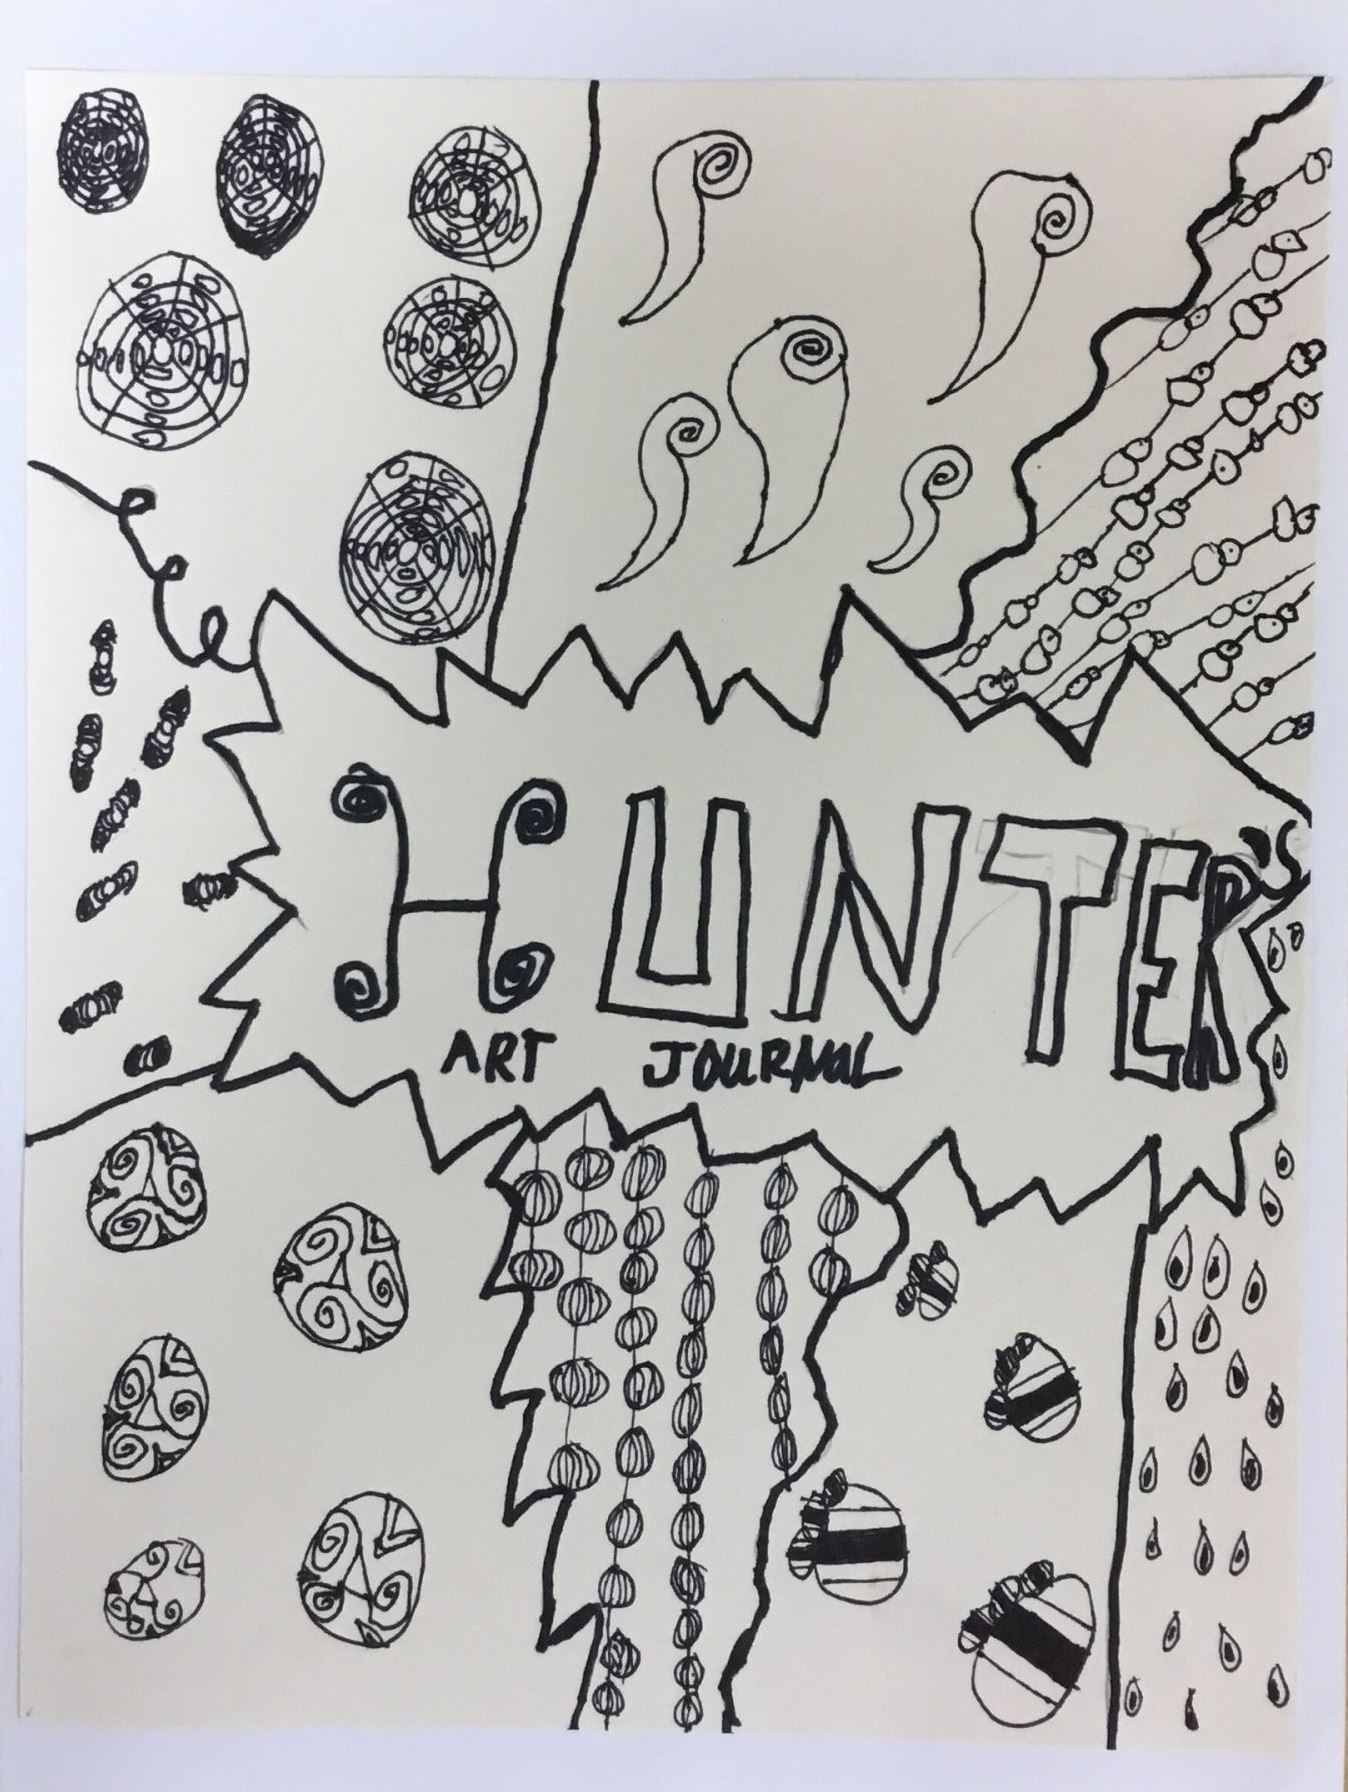 HUNTER'S
ART JOURNAL